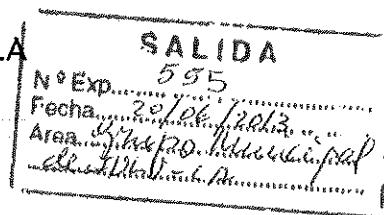 .A
SALIDA
Nº Exp. 595
Fecha 20/06/2013
Area Grupo Municipal